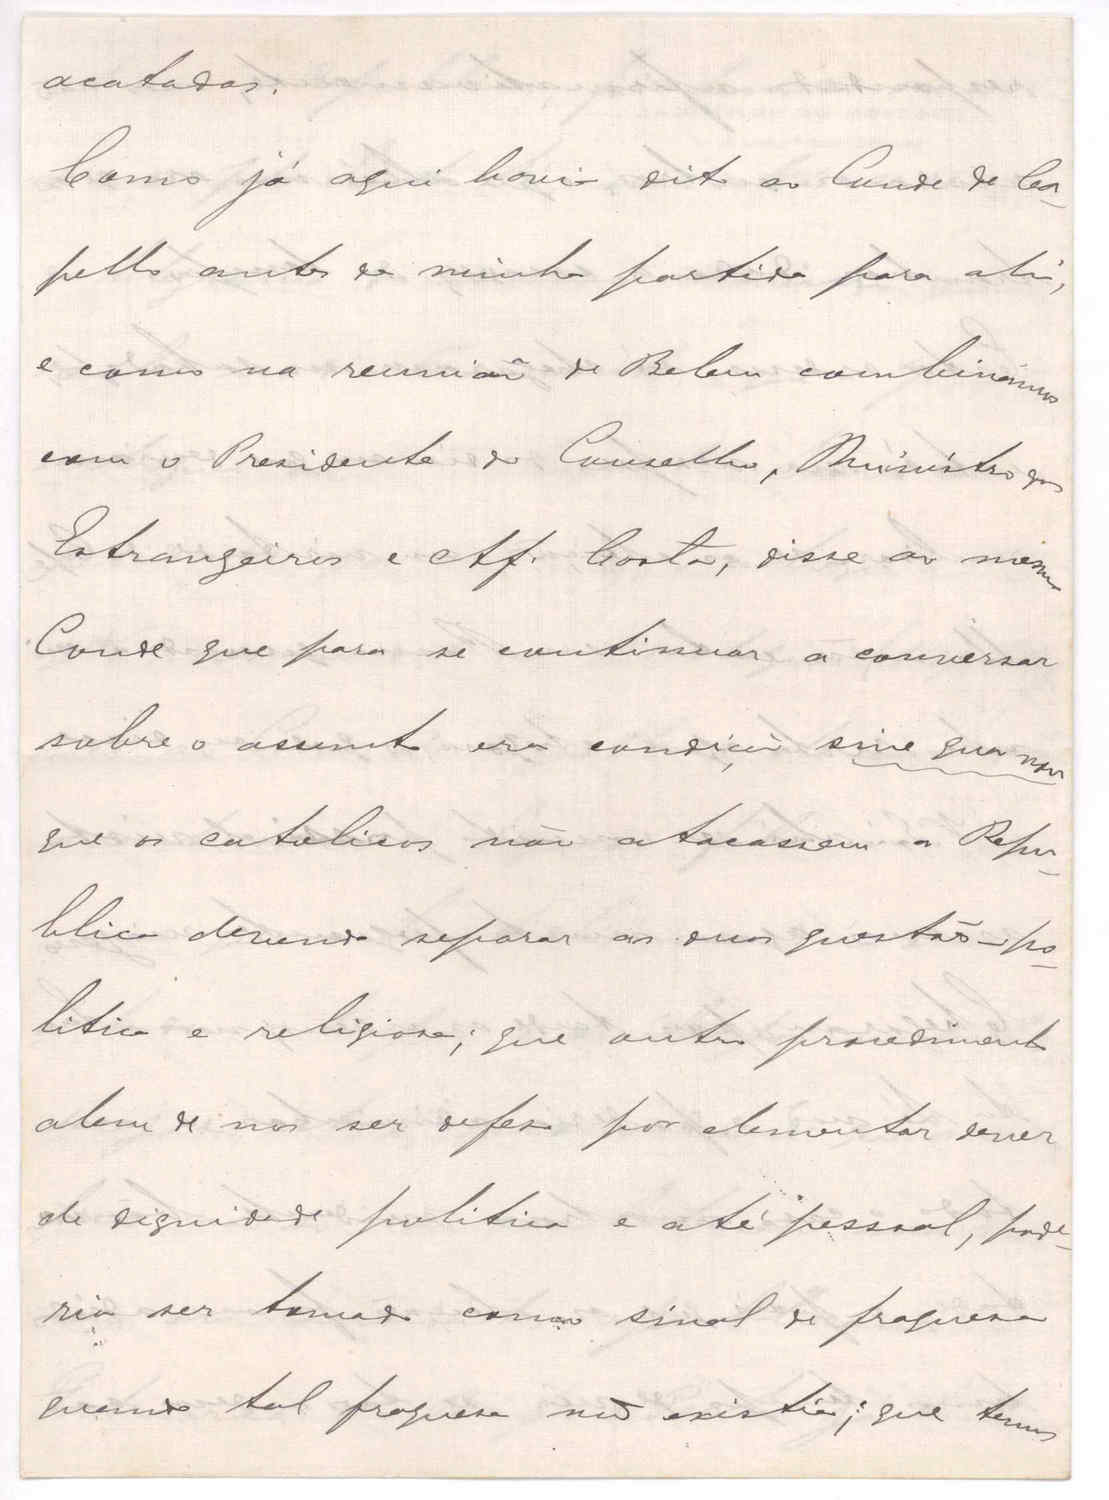 acatadas.
Como já aqui havia dito ao Conde de Ca-
pello antes da minha partida para ahi,
e como na reunião de Belem combinámos
com o Presidente do Conselho, Ministro dos
Estrangeiros e Aff. Costa, disse ao mesmo
Conde que para se continuar a conversar
sobre o assunto era condição sine qua non
que os catolicos não atacassem a Repu-
blica devendo separar as duas questões - po-
litica e religiosa; que outro procedimento
alem de nos ser defeso por elementar dever
de dignidade politica e até pessoal, pode-
ria ser tomado como sinal de fraquesa
quando tal fraquesa não existia; que temos